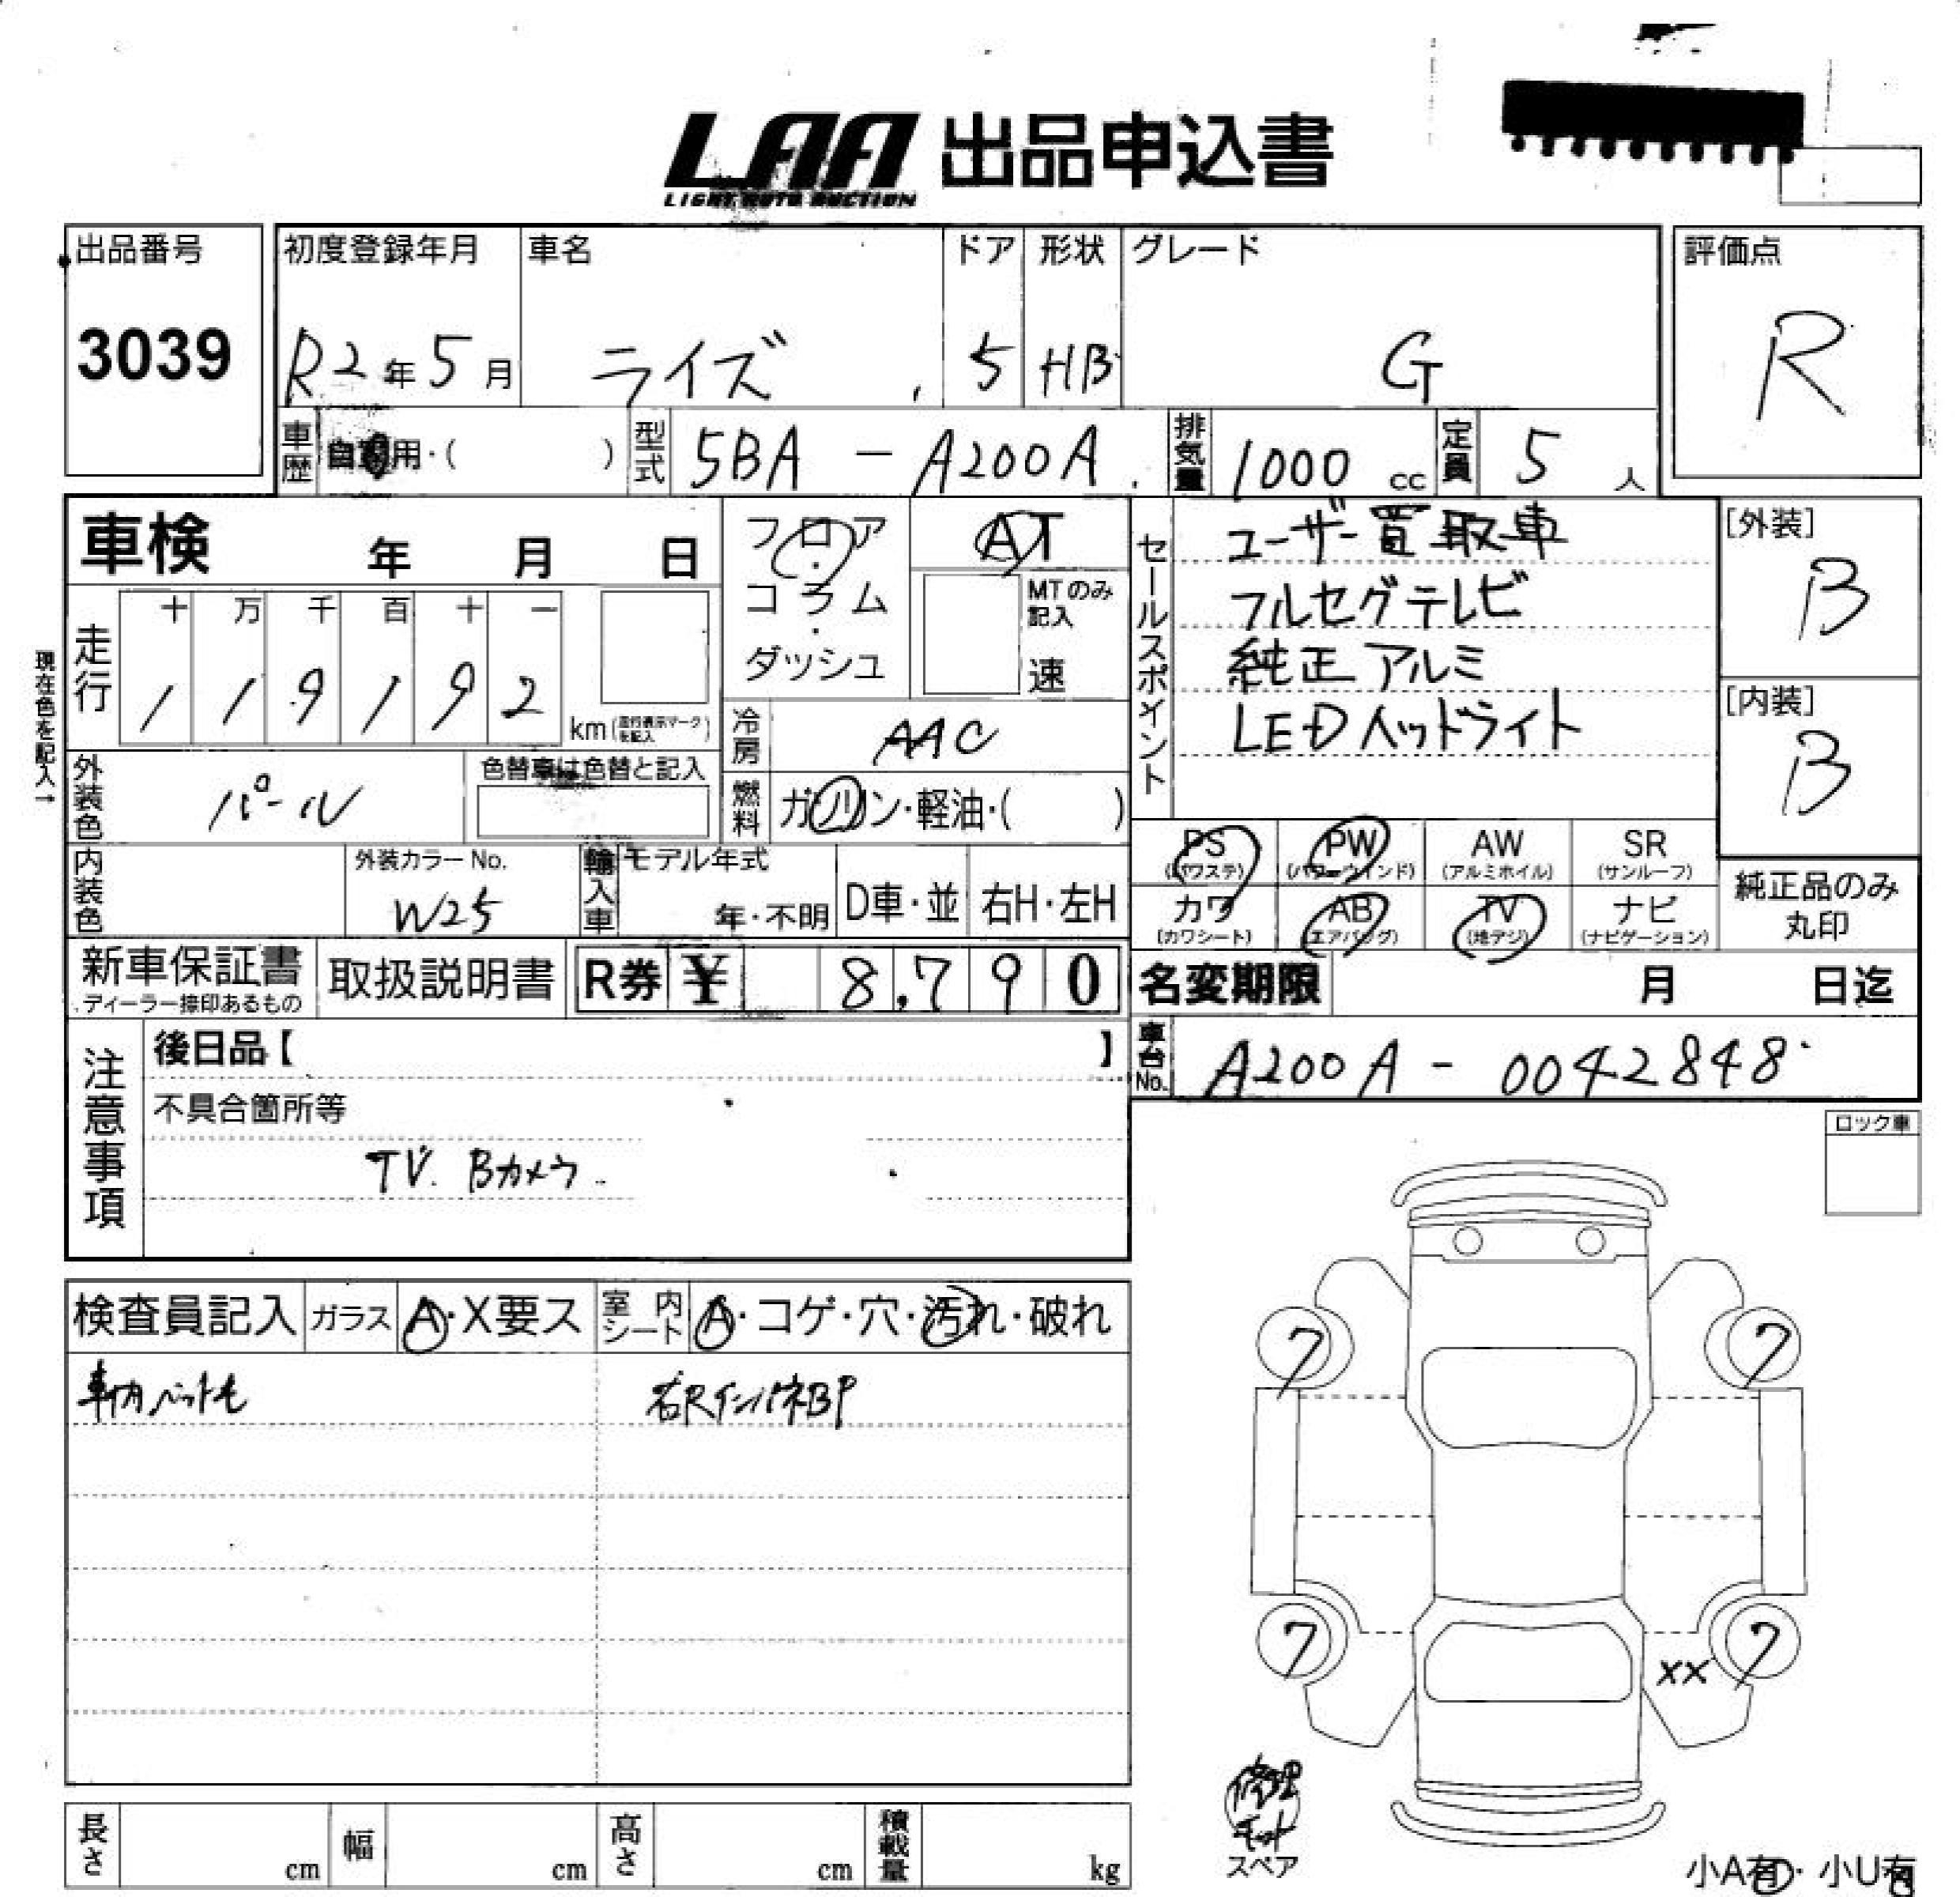 LAA 出品申込書
LIGHT AUTO AUCTION
出品番号
3039
初度登録年月
R2年5月
車名
ライズ
ドア
5
形状
HB
グレード
G
評価点
R
車歴
自家用・( )
型式
5BA - A200A
排気量
1000 cc
定員
5 人
車検 年 月 日
フロア・コラム・ダッシュ
AT
MTのみ記入
速
セールスポイント
ユーザー買取車
フルセグテレビ
純正アルミ
LEDヘッドライト
[外装]
B
[内装]
B
現在色を記入→
走行
十 万 千 百 十 一
1 1 9 1 9 2
km (走行表示マークを記入)
冷房
AAC
外装色
パール
色替車は色替と記入
燃料
ガソリン・軽油・( )
内装色
外装カラーNo.
W25
輸入車
モデル年式
年・不明
D車・並
右H・左H
PS
(パワステ)
PW
(パワーウインド)
AW
(アルミホイル)
SR
(サンルーフ)
カワ
(カワシート)
AB
(エアバッグ)
TV
(地デジ)
ナビ
(ナビゲーション)
純正品のみ
丸印
新車保証書
ディーラー捺印あるもの
取扱説明書
R券 ¥ 8,790
名変期限 月 日迄
車台No.
A200A - 0042848
注意事項
後日品【 】
不具合箇所等
TV. Bカメラ
ロック車
検査員記入
ガラス
A・X要ス
室内シート
A・コゲ・穴・汚れ・破れ
車内ペット毛
右RインパネBP
7
7
7
7
XX
スペア
長さ cm
幅 cm
高さ cm
積載量 kg
小A有・小U有